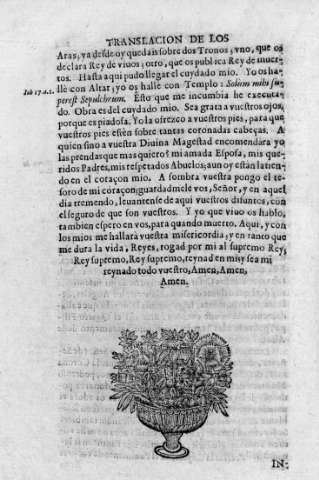 TRANSLACION DE LOS
Aras, ya desde oy quedais sobre dos Tronos; vno, que os
declara Rey de viuos; otro, que os publica Rey de muer-
tos. Hasta aqui pudo llegar el cuydado mio. Yo os ha-
Iob 17. v. 1.
llè con Altar, yo os hallè con Templo: Solum mihi su-
perest Sepulchrum. Esto que me incumbia he executa-
do. Obra es del cuydado mio. Sea grata a vuestros ojos,
porque es piadosa. Yo la ofrezco a vuestros pies, para que
vuestros pies estèn sobre tantas coronadas cabeças. A
quien sino a vuestra Diuina Magestad encomendára yo
las prendas que mas quiero? mi amada Esposa, mis que-
ridos Padres, mis respetados Abuelos, aun oy estàn latien-
do en el coraçon mio. A sombra vuestra pongo el te-
soro de mi coraçon; guardadmele vos, Señor, y en aquel
dia tremendo, leuantense de aqui vuestros difuntos, con
el seguro de que son vuestros. Y yo que viuo os hablo,
tambien espero en vos, para quando muerto. Aqui, y con
los mios me hallarà vuestra misericordia; y en tanto que
me dura la vida, Reyes, rogad por mi al supremo Rey,
Rey supremo, Rey supremo, reynad en mi, y sea mi
reynado todo vuestro, Amen, Amen,
Amen.
IN-